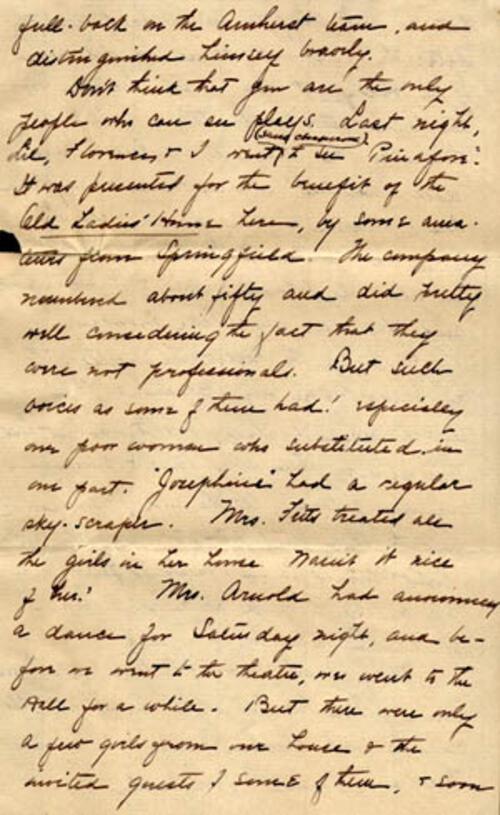 full-back on the Amherst team, and
distinguished himself bravely.
Don't think that you are the only
people who can see plays. Last night,
Lil, Florence, & I went to see "Pinafore".
It was presented for the benefit of the
Old Ladies' Home here, by some ama-
teurs from Springfield. The company
numbered about fifty and did pretty
well considering the fact that they
were not professionals. But such
voices as some of them had! especialey
one poor woman who substituted in
one part. "Josephine" had a regular
sky-scraper. Mrs. Fitts treated all
the girls in her house Wasn't it nice
of her? Mrs. Arnold had announced
a dance for Saturday night, and be-
fore we went to the theatre, we went to the
Hall for a while. But there were only
a few girls from our house & the
invited guests of some of them, & soon